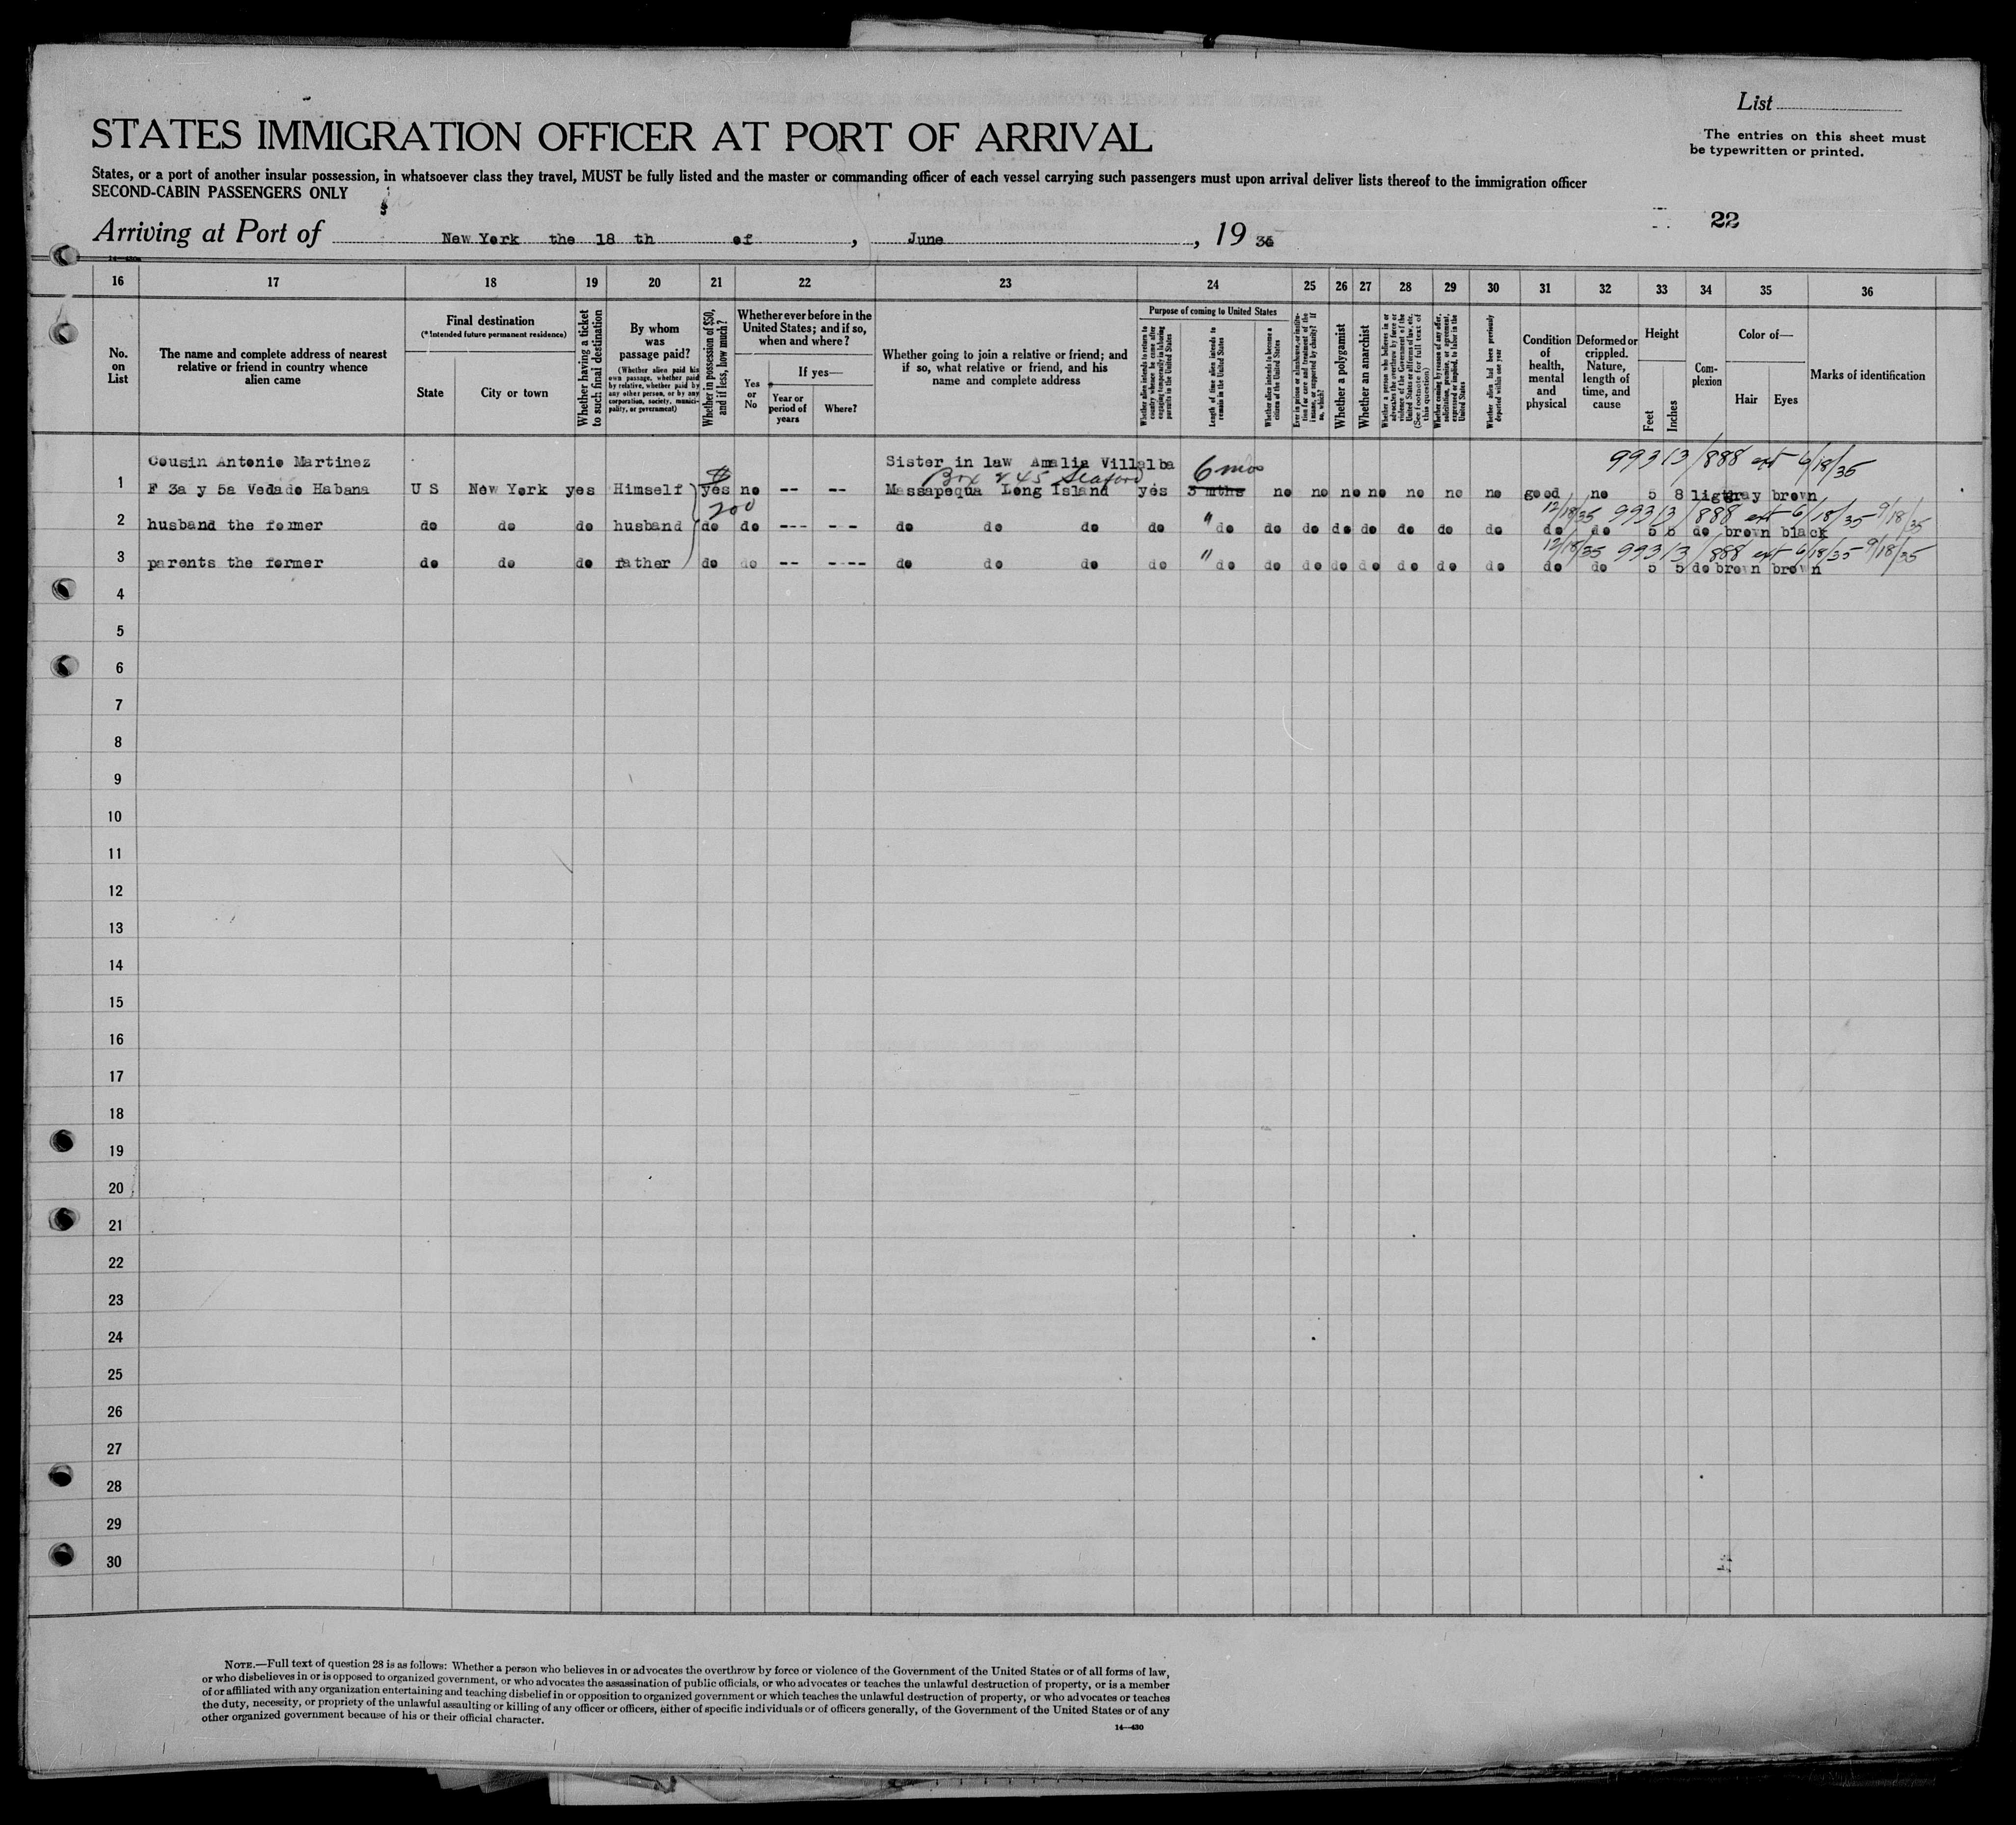 List
The entries on this sheet must
be typewritten or printed.
STATES IMMIGRATION OFFICER AT PORT OF ARRIVAL
States, or a port of another insular possession, in whatsoever class they travel, MUST be fully listed and the master or commanding officer of each vessel carrying such passengers must upon arrival deliver lists thereof to the immigration officer
SECOND-CABIN PASSENGERS ONLY
22
Arriving at Port of New York the 18 th of , June , 19
16 17 18 19 20 21 22 23 24 25 26 27 28 29 30 31 32 33 34 35 36
No. on List
The name and complete address of nearest relative or friend in country whence alien came
Final destination
(*Intended future permanent residence)
State
City or town
Whether having a ticket to such final destination
By whom was passage paid?
(Whether alien paid his own passage, whether paid by relative, whether paid by any other person, or by any corporation, society, municipality, or government)
Whether in possession of $50, and if less, how much?
Whether ever before in the United States; and if so, when and where?
Yes or No
If yes—
Year or period of years
Where?
Whether going to join a relative or friend; and if so, what relative or friend, and his name and complete address
Purpose of coming to United States
Whether alien intends to return to country whence he came after engaging temporarily in laboring pursuits in the United States
Length of time alien intends to remain in the United States
Whether alien intends to become a citizen of the United States
Ever in prison or almshouse, or institution for care and treatment of the insane, or supported by charity? If so, which?
Whether a polygamist
Whether an anarchist
Whether a person who believes in or advocates the overthrow by force or violence of the Government of the United States or all forms of law, etc. (See footnote for full text of this question)
Whether coming by reason of any offer, solicitation, promise, or agreement, expressed or implied, to labor in the United States
Whether alien had been previously deported within one year
Condition of health, mental and physical
Deformed or crippled. Nature, length of time, and cause
Height
Feet
Inches
Com-
plexion
Color of—
Hair
Eyes
Marks of identification
Cousin Antonio Martinez Sister in law Amalia Villalba 6 mos 99313/888 ext 6/18/35
$ Box 245 Seaford
1 F 3a y 5a Vedado Habana U S New York yes Himself yes no -- -- Massapequa Long Island yes 3 mths no no no no no no no good no 5 8 ligt gray brown
200 12/18/35 99313/888 ext 6/18/35 9/18/35
2 husband the former do do do husband do do --- -- do do do do " do do do do do do do do do do 5 5 do brown black
12/18/35 99313/888 ext 6/18/35 9/18/35
3 parents the former do do do father do do -- ---- do do do do " do do do do do do do do do do 5 5 do brown brown
4
5
6
7
8
9
10
11
12
13
14
15
16
17
18
19
20
21
22
23
24
25
26
27
28
29
30
NOTE.—Full text of question 28 is as follows: Whether a person who believes in or advocates the overthrow by force or violence of the Government of the United States or of all forms of law,
or who disbelieves in or is opposed to organized government, or who advocates the assassination of public officials, or who advocates or teaches the unlawful destruction of property, or is a member
of or affiliated with any organization entertaining and teaching disbelief in or opposition to organized government or which teaches the unlawful destruction of property, or who advocates or teaches
the duty, necessity, or propriety of the unlawful assaulting or killing of any officer or officers, either of specific individuals or of officers generally, of the Government of the United States or of any
other organized government because of his or their official character.
14—430